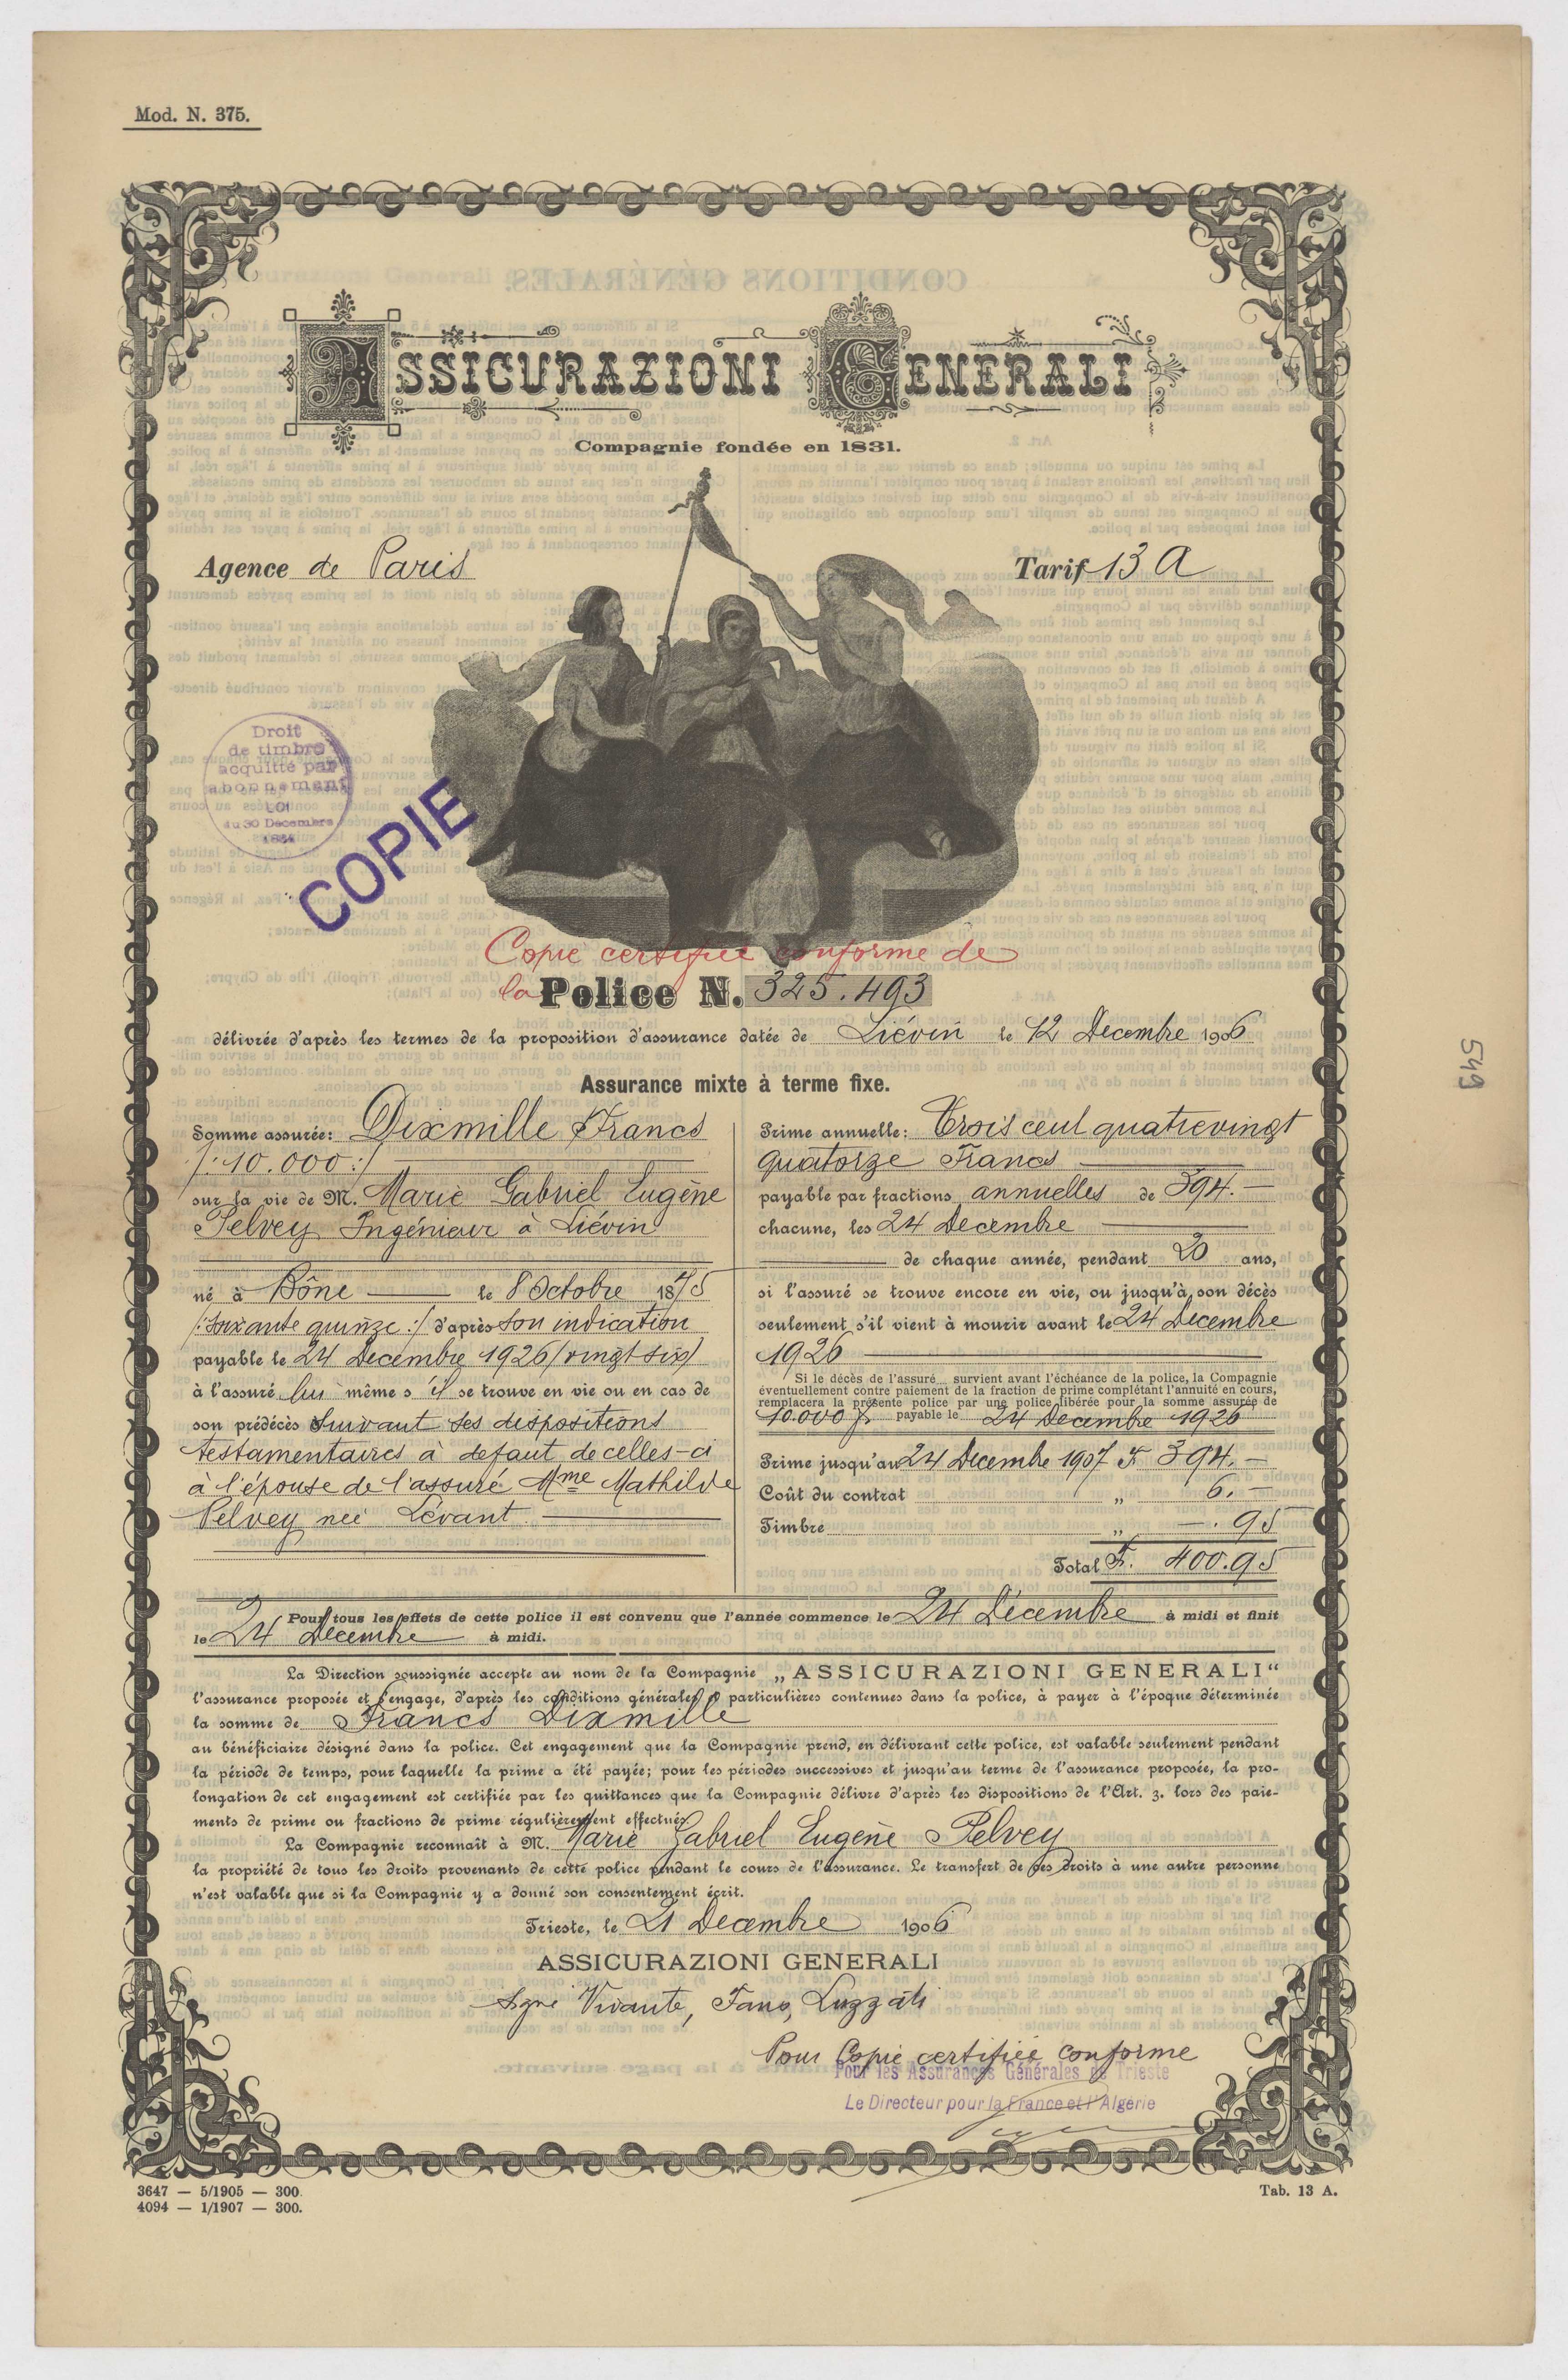 Mod. N. 375.
ASSICURAZIONI GENERALI
Compagnie fondée en 1831.
Agence de Paris
Tarif 13 A
Droit
de timbre
acquitté par
abonnement
LOI
du 30 Décembre
COPIE
Copie certifiée conforme de
la Police N. 325.493
délivrée d'après les termes de la proposition d'assurance datée de Liévin le 12 Decembre 1906
Assurance mixte à terme fixe.
Somme assurée: Dixmille Francs
/:10.000:/
sur la vie de M. Marie Gabriel Eugène
Pelvey Ingénieur à Liévin
né à Bône le 8 Octobre 1875
/:soixante quinze:/ d'après son indication
payable le 24 Decembre 1926 /vingt six/
à l'assuré lui même s'il se trouve en vie ou en cas de
son prédécès suivant ses dispositions
testamentaires à defaut de celles-ci
à l'épouse de l'assuré Mme Mathilde
Pelvey née Lévant
Prime annuelle: Trois cent quatrevingt
quatorze Francs
payable par fractions annuelles de 394.-
chacune, les 24 Decembre
de chaque année, pendant 20 ans,
si l'assuré se trouve encore en vie, ou jusqu'à son décès
seulement s'il vient à mourir avant le 24 Decembre
1926
Si le décès de l'assuré survient avant l'échéance de la police, la Compagnie
éventuellement contre paiement de la fraction de prime complétant l'annuité en cours,
remplacera la présente police par une police libérée pour la somme assurée de
10.000 f. payable le 24 Decembre 1926
Prime jusqu'au 24 Decembre 1907 F. 394.-
Coût du contrat „ 6.-
Timbre „ -.95
Total F. 400.95
Pour tous les effets de cette police il est convenu que l'année commence le 24 Décembre à midi et finit
le 24 Decembre à midi.
La Direction soussignée accepte au nom de la Compagnie „ASSICURAZIONI GENERALI“
l'assurance proposée et s'engage, d'après les conditions générales & particulières contenues dans la police, à payer à l'époque déterminée
la somme de Francs Dixmille
au bénéficiaire désigné dans la police. Cet engagement que la Compagnie prend, en délivrant cette police, est valable seulement pendant
la période de temps, pour laquelle la prime a été payée; pour les périodes successives et jusqu'au terme de l'assurance proposée, la pro-
longation de cet engagement est certifiée par les quittances que la Compagnie délivre d'après les dispositions de l'Art. 3. lors des paie-
ments de prime ou fractions de prime régulièrement effectués.
La Compagnie reconnaît à M. Marie Gabriel Eugène Pelvey
la propriété de tous les droits provenants de cette police pendant le cours de l'assurance. Le transfert de ces droits à une autre personne
n'est valable que si la Compagnie y a donné son consentement écrit.
Trieste, le 21 Decembre 1906
ASSICURAZIONI GENERALI
Signé Vivante, Fano, Luzzati
Pour Copie certifiée conforme
Pour les Assurances Générales de Trieste
Le Directeur pour la France et l'Algérie
3647 — 5/1905 — 300.
4094 — 1/1907 — 300.
Tab. 13 A.
549